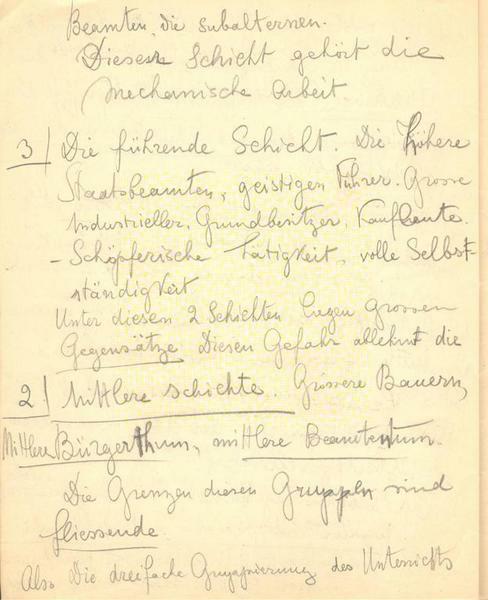 Beamten, die subalternen.
Dieser Schicht gehört die
mechanische Arbeit
3/ Die führende Schicht. Die Höhere
Staatsbeamten, geistigen Führer. Grosse
Industrieller, Grundbesitzer, Kaufleute.
- Schöpferische Tätigkeit, volle Selbst-
ständigkeit
Unter diesen 2 Schichten liegen grossen
Gegensätze. Diesen Gefahr ablehnt die
2/ Mittlere Schichte. Grössere Bauern,
Mittlere Bürgerthum, mittlere Beamtentum.
Die Grenzen diesen Gruppen sind
fliessende
Also Die dreifache Gruppierung des Unterrichts